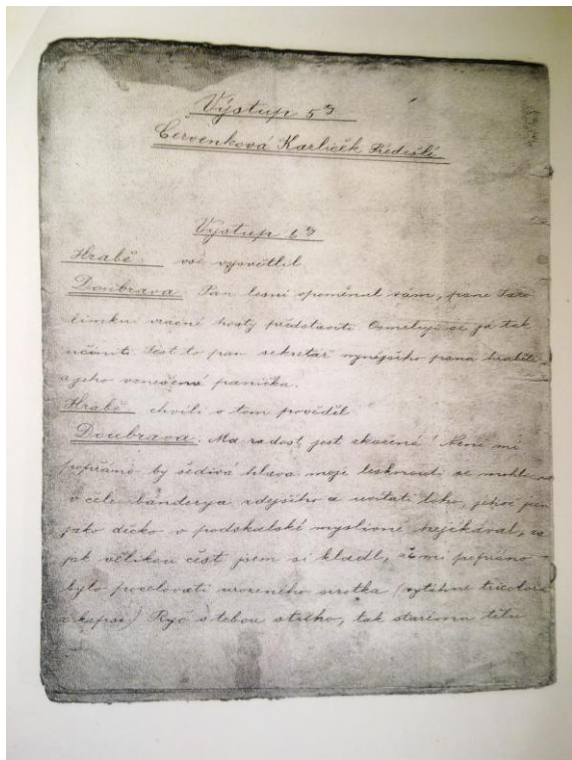 Výstup 5ý
Červenková Karlíček Ředešlí
Výstup 6ý
Hrabě vše vysvětlil
Doubrava: Pan lesní opoměnul vám, pane
vzácné hosty představiti. Osmeluji se já tak
učiniti. Jest to pan sekretář nynějšího pana hraběte
a jeho vznešená panička.
Hrabě chvíli o tom pověděl
Doubrava: Má radost jest skončena! Není mi
popřáno by šedivá hlava moje lesknouti se mohla
v čele banderya zdejšího a uvítati toho, jehož jsem
jako děcko v podskalské myslivně
jak velikou čest jsem si kladl, že mi popřáno
bylo pocelovati urozeného sirotka (vytáhne
z kapsi) s tebou, tak starému